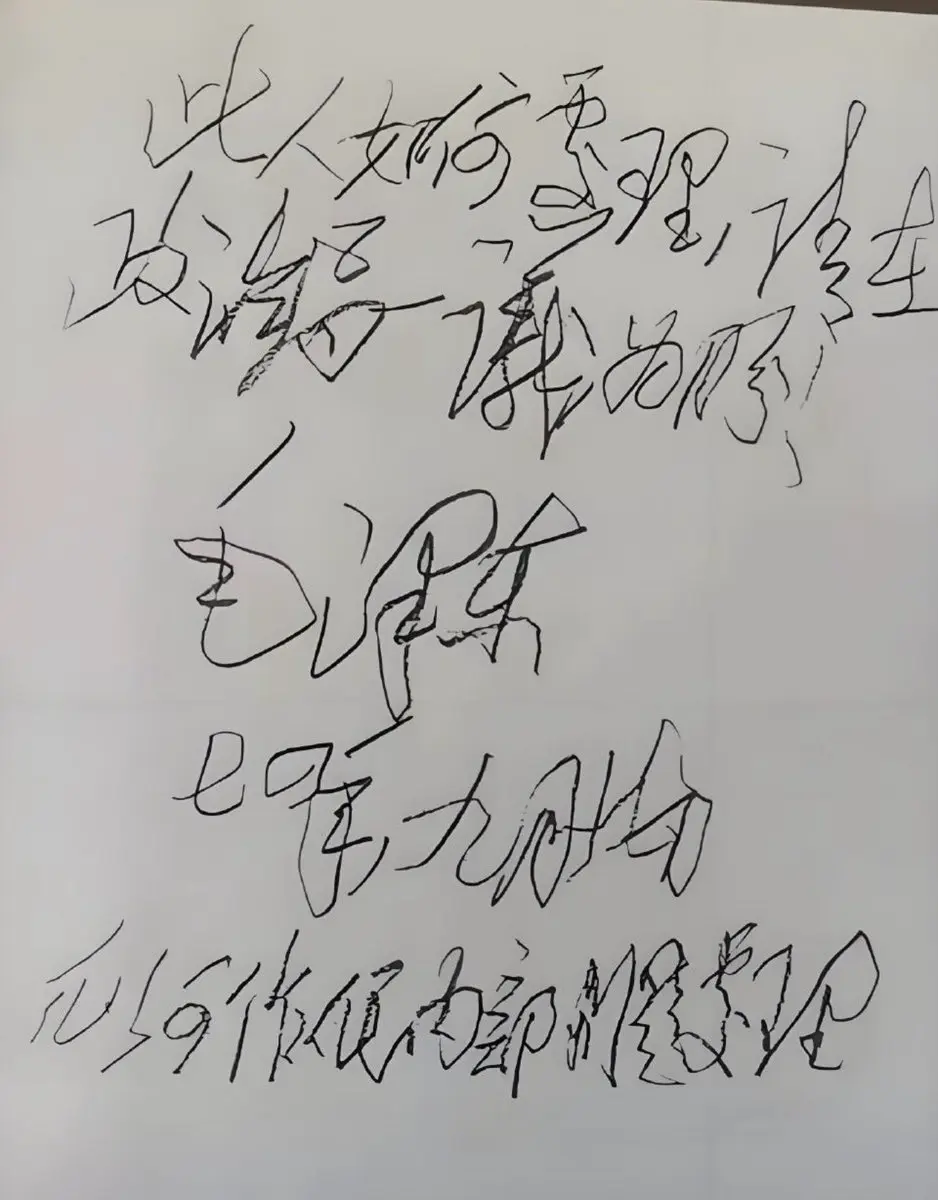 此人如何处理,请在
政治局一议为盼
毛泽东
七四年九月
可作人内部问题处理